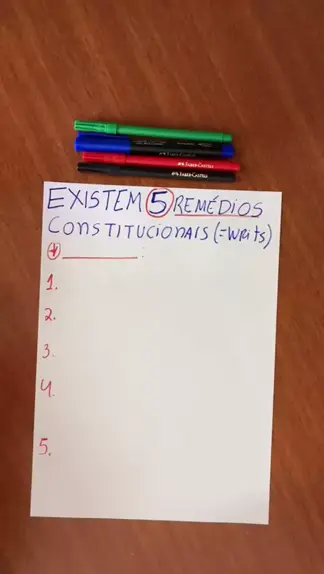 FABER-CASTELL
FABER-CASTELL
FABER-CASTELL
EXISTEM 5 REMÉDIOS
CONSTITUCIONAIS (=WRITS)
+ ________ :
1.
2.
3.
4.
5.